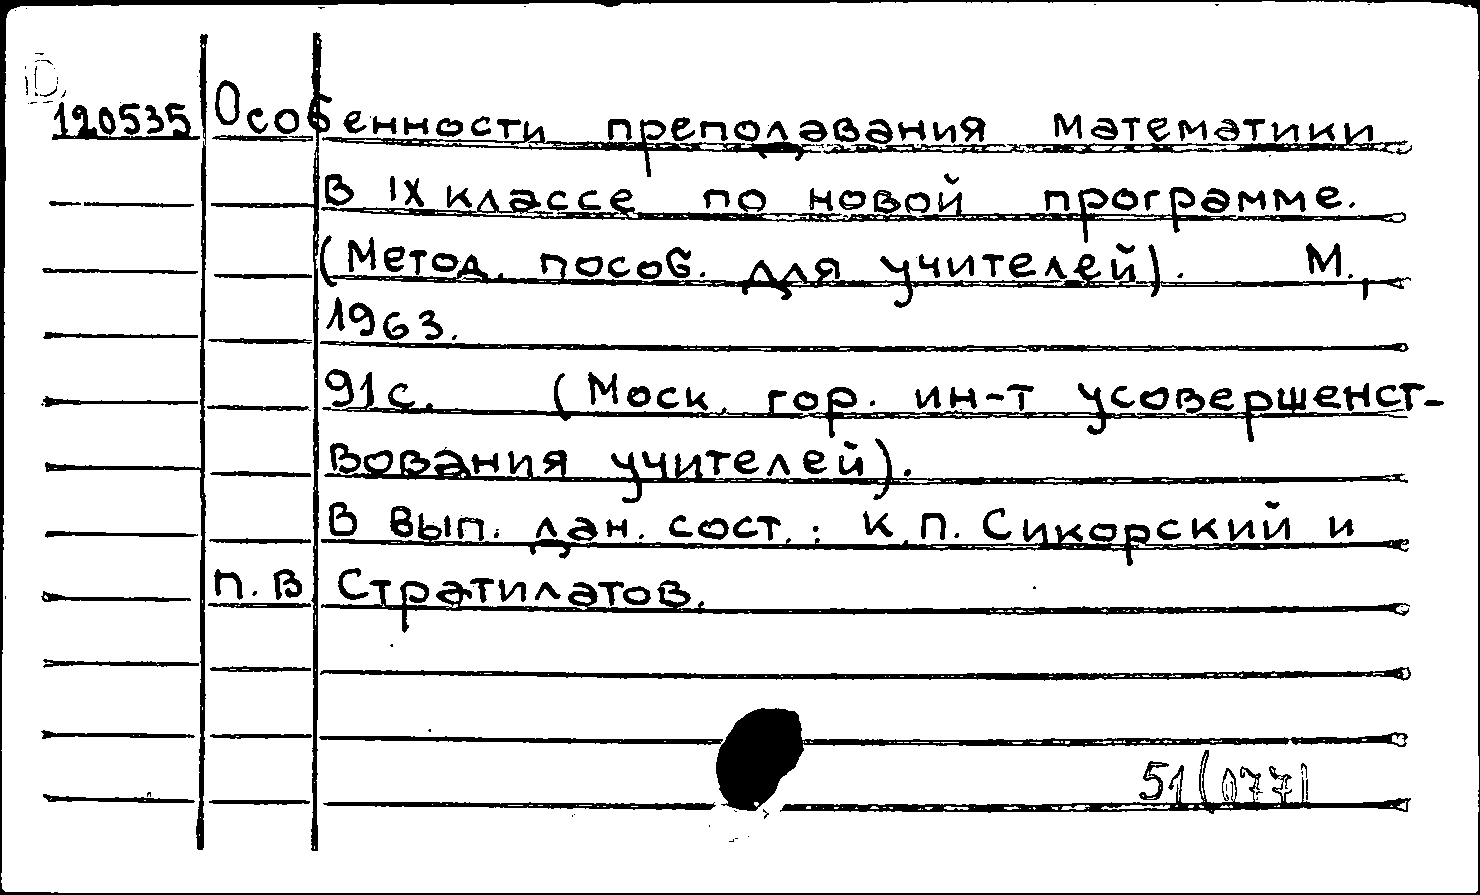 D
120535 Особенности преподавания математики
в IX классе по новой программе.
(Метод. пособ. для учителей). М.,
1963.
91с. (Моск. гор. ин-т усовершенст-
вования учителей).
В вып. дан. сост.: К.П. Сикорский и
П.В Стратилатов.
51(077)